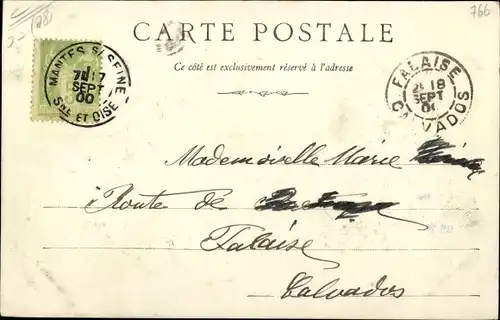 766
CARTE POSTALE
Ce côté est exclusivement réservé à l'adresse
MANTES S/ SEINE
17
SEPT
00
SNE ET OISE
FALAISE
18
SEPT
00
CALVADOS
Mademoiselle Marie
Route de
Falaise
Calvados